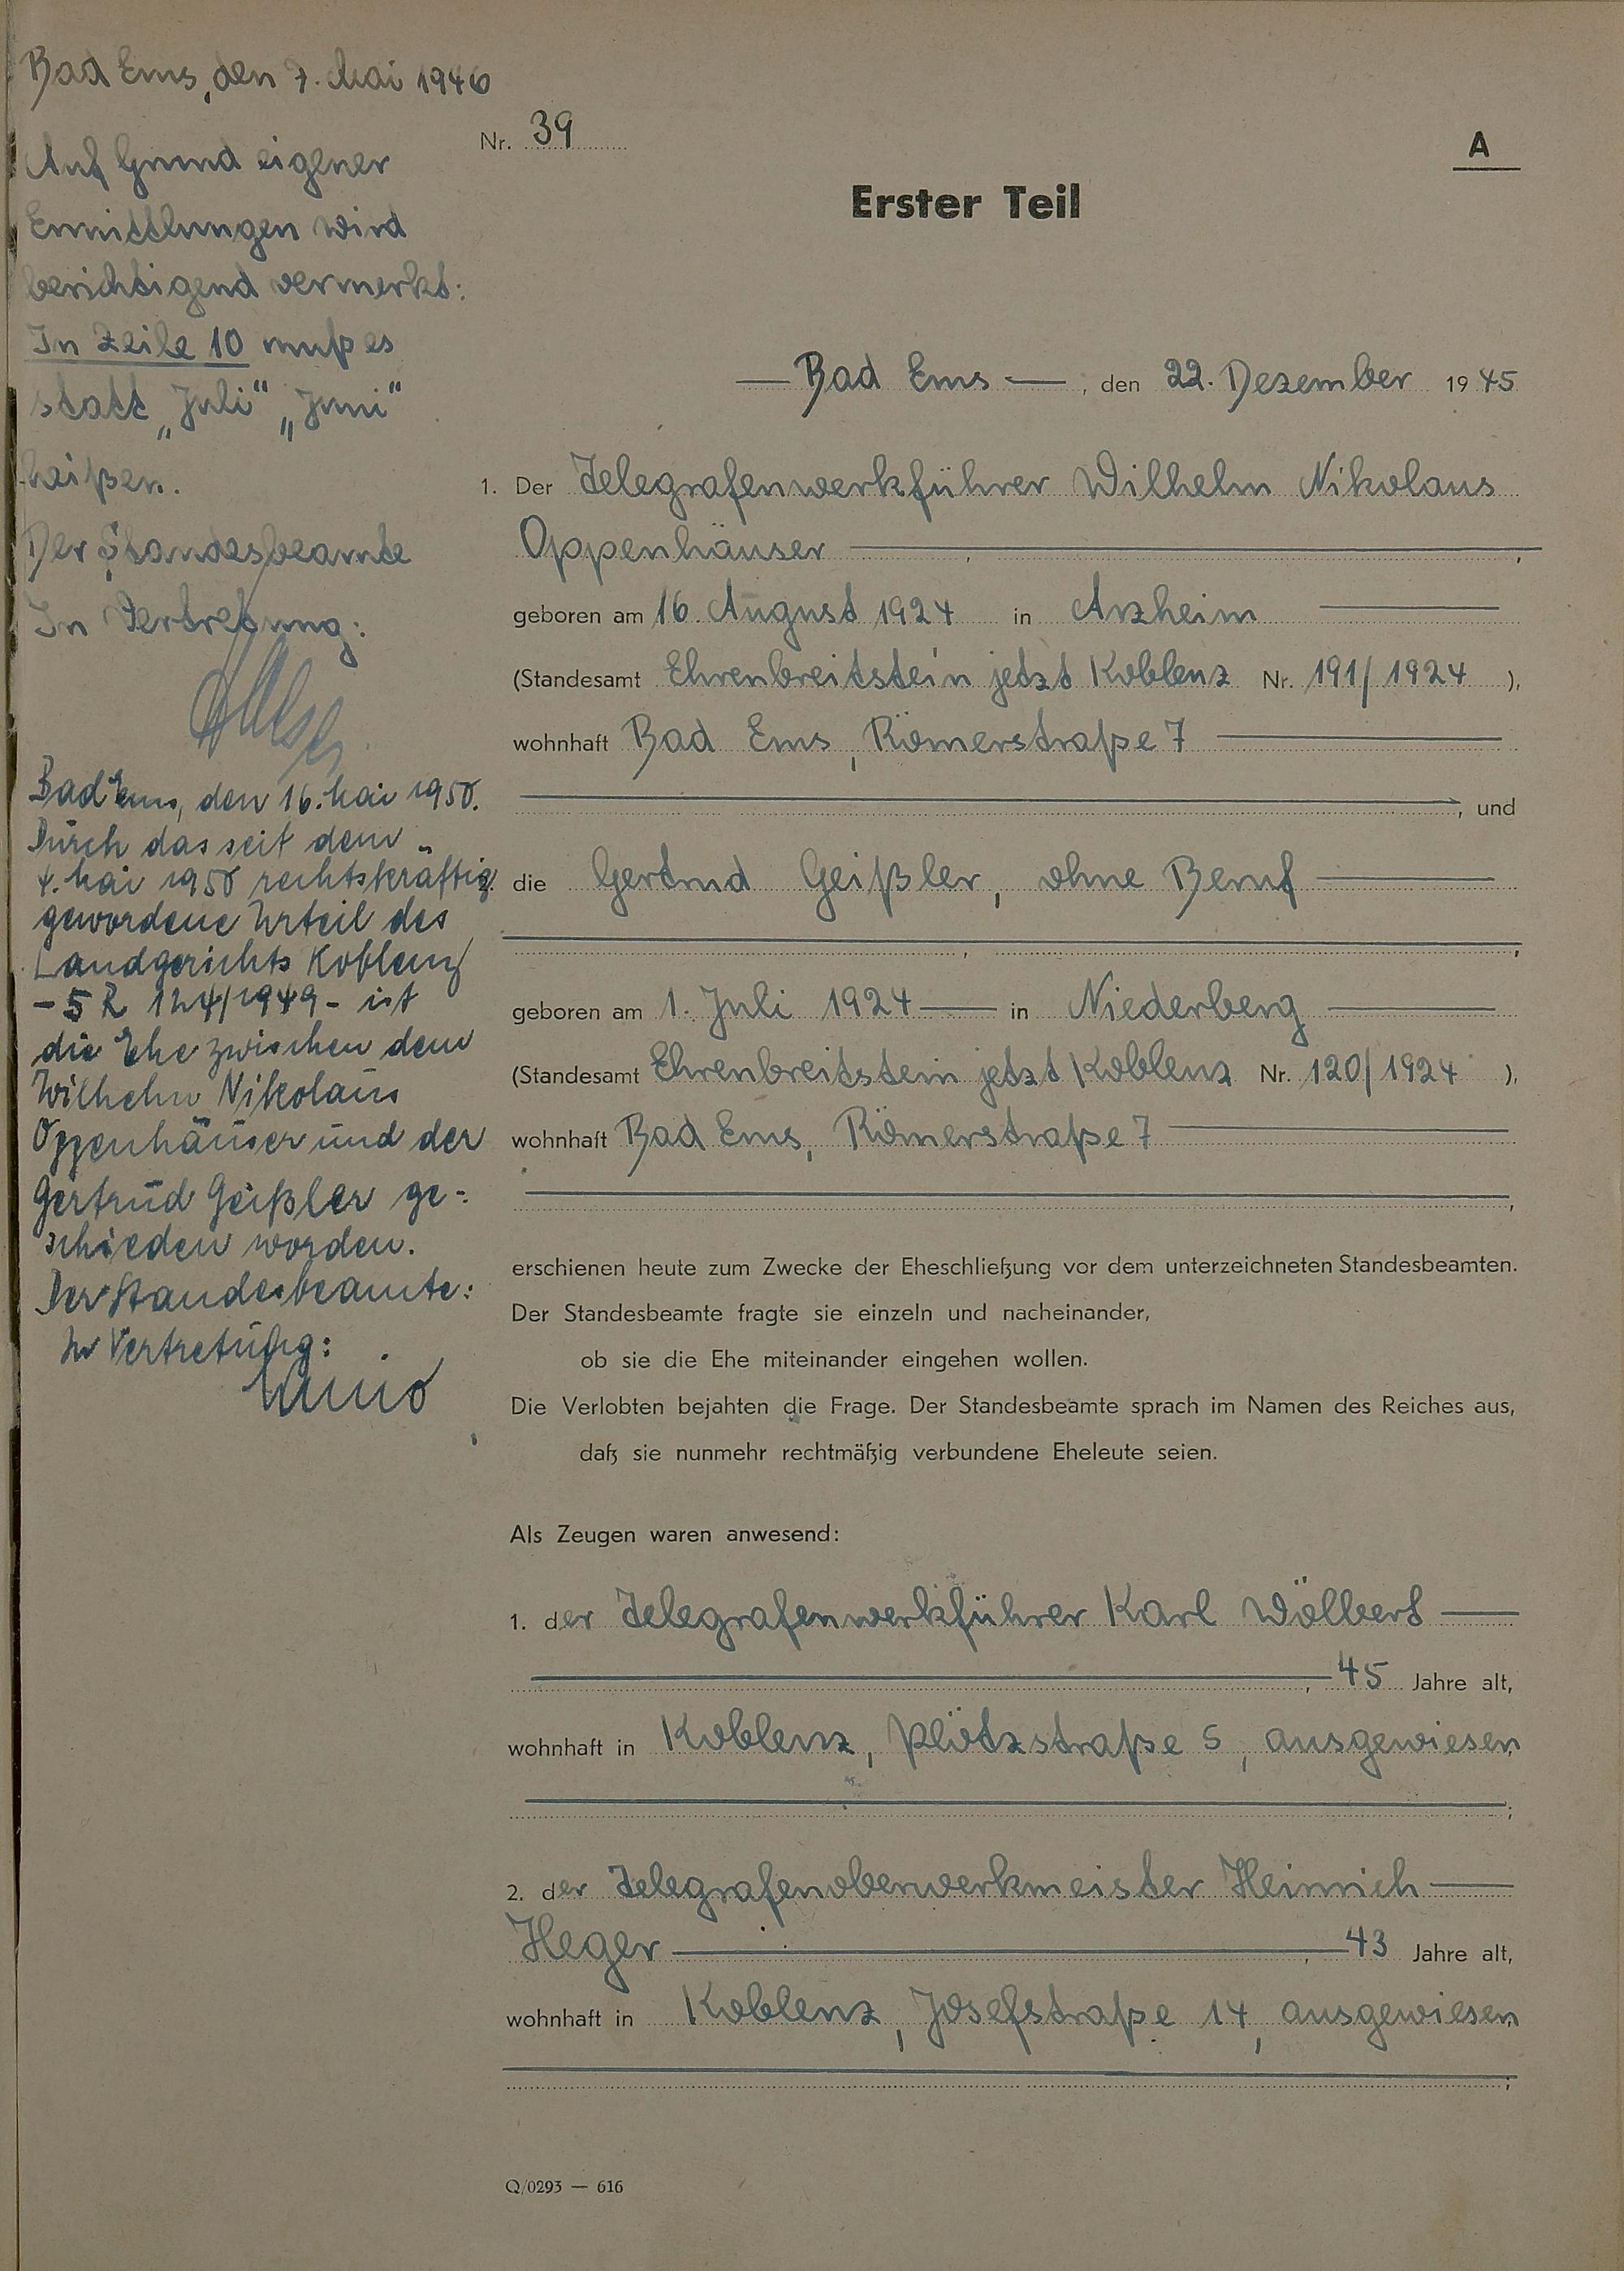 Bad Ems, den 7. Mai 1946
Auf Grund eigener
Ermittlungen wird
berichtigend vermerkt:
In Zeile 10 muß es
statt „Juli“ „Juni“
heißen.
Der Standesbeamte
In Vertretung:
Bad Ems, den 16. Mai 1950.
Durch das seit dem
4. Mai 1950 rechtskräftig
gewordene Urteil des
Landgerichts Koblenz
- 5 R 124/1949 - ist
die Ehe zwischen dem
Wilhelm Nikolaus
Oppenhäuser und der
Gertrud Geißler ge-
schieden worden.
Der Standesbeamte:
In Vertretung:
Nr. 39
A
Erster Teil
Bad Ems, den 22. Dezember 1945
1. Der Telegrafenwerkführer Wilhelm Nikolaus
Oppenhäuser,
geboren am 16. August 1924 in Arzheim
(Standesamt Ehrenbreitstein jetzt Koblenz Nr. 191/1924),
wohnhaft Bad Ems, Römerstraße 7
, und
die Gertrud Geißler, ohne Beruf
,
geboren am 1. Juli 1924 in Niederberg
(Standesamt Ehrenbreitstein jetzt Koblenz Nr. 120/1924),
wohnhaft Bad Ems, Römerstraße 7
,
erschienen heute zum Zwecke der Eheschließung vor dem unterzeichneten Standesbeamten.
Der Standesbeamte fragte sie einzeln und nacheinander,
ob sie die Ehe miteinander eingehen wollen.
Die Verlobten bejahten die Frage. Der Standesbeamte sprach im Namen des Reiches aus,
daß sie nunmehr rechtmäßig verbundene Eheleute seien.
Als Zeugen waren anwesend:
1. der Telegrafenwerkführer Karl Wölbert
, 45 Jahre alt,
wohnhaft in Koblenz, Plötzstraße 5, ausgewiesen
;
2. der Telegrafenoberwerkmeister Heinrich
Heger, 43 Jahre alt,
wohnhaft in Koblenz, Josefstraße 14, ausgewiesen
;
Q/0293 — 616